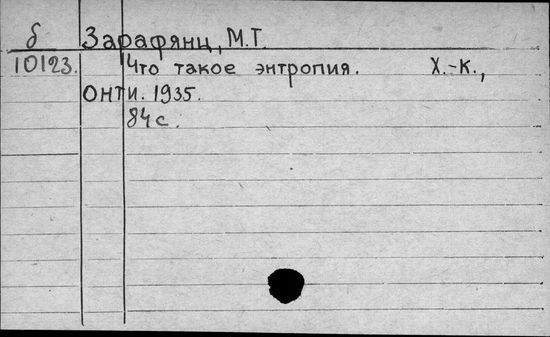 б Зарафянц, М.Т.
10123. Что такое энтропия. Х.-К.,
ОНТИ. 1935.
84с.